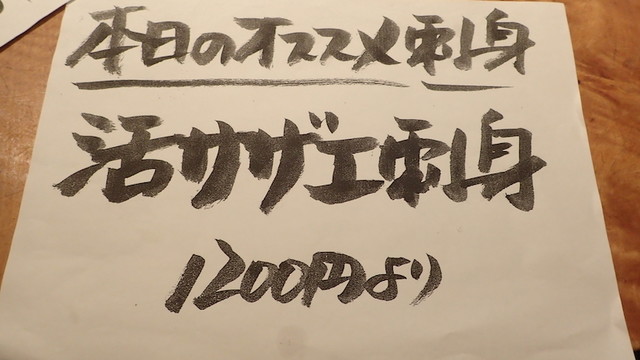 本日のオススメ刺身
活サザエ刺身
1200円より